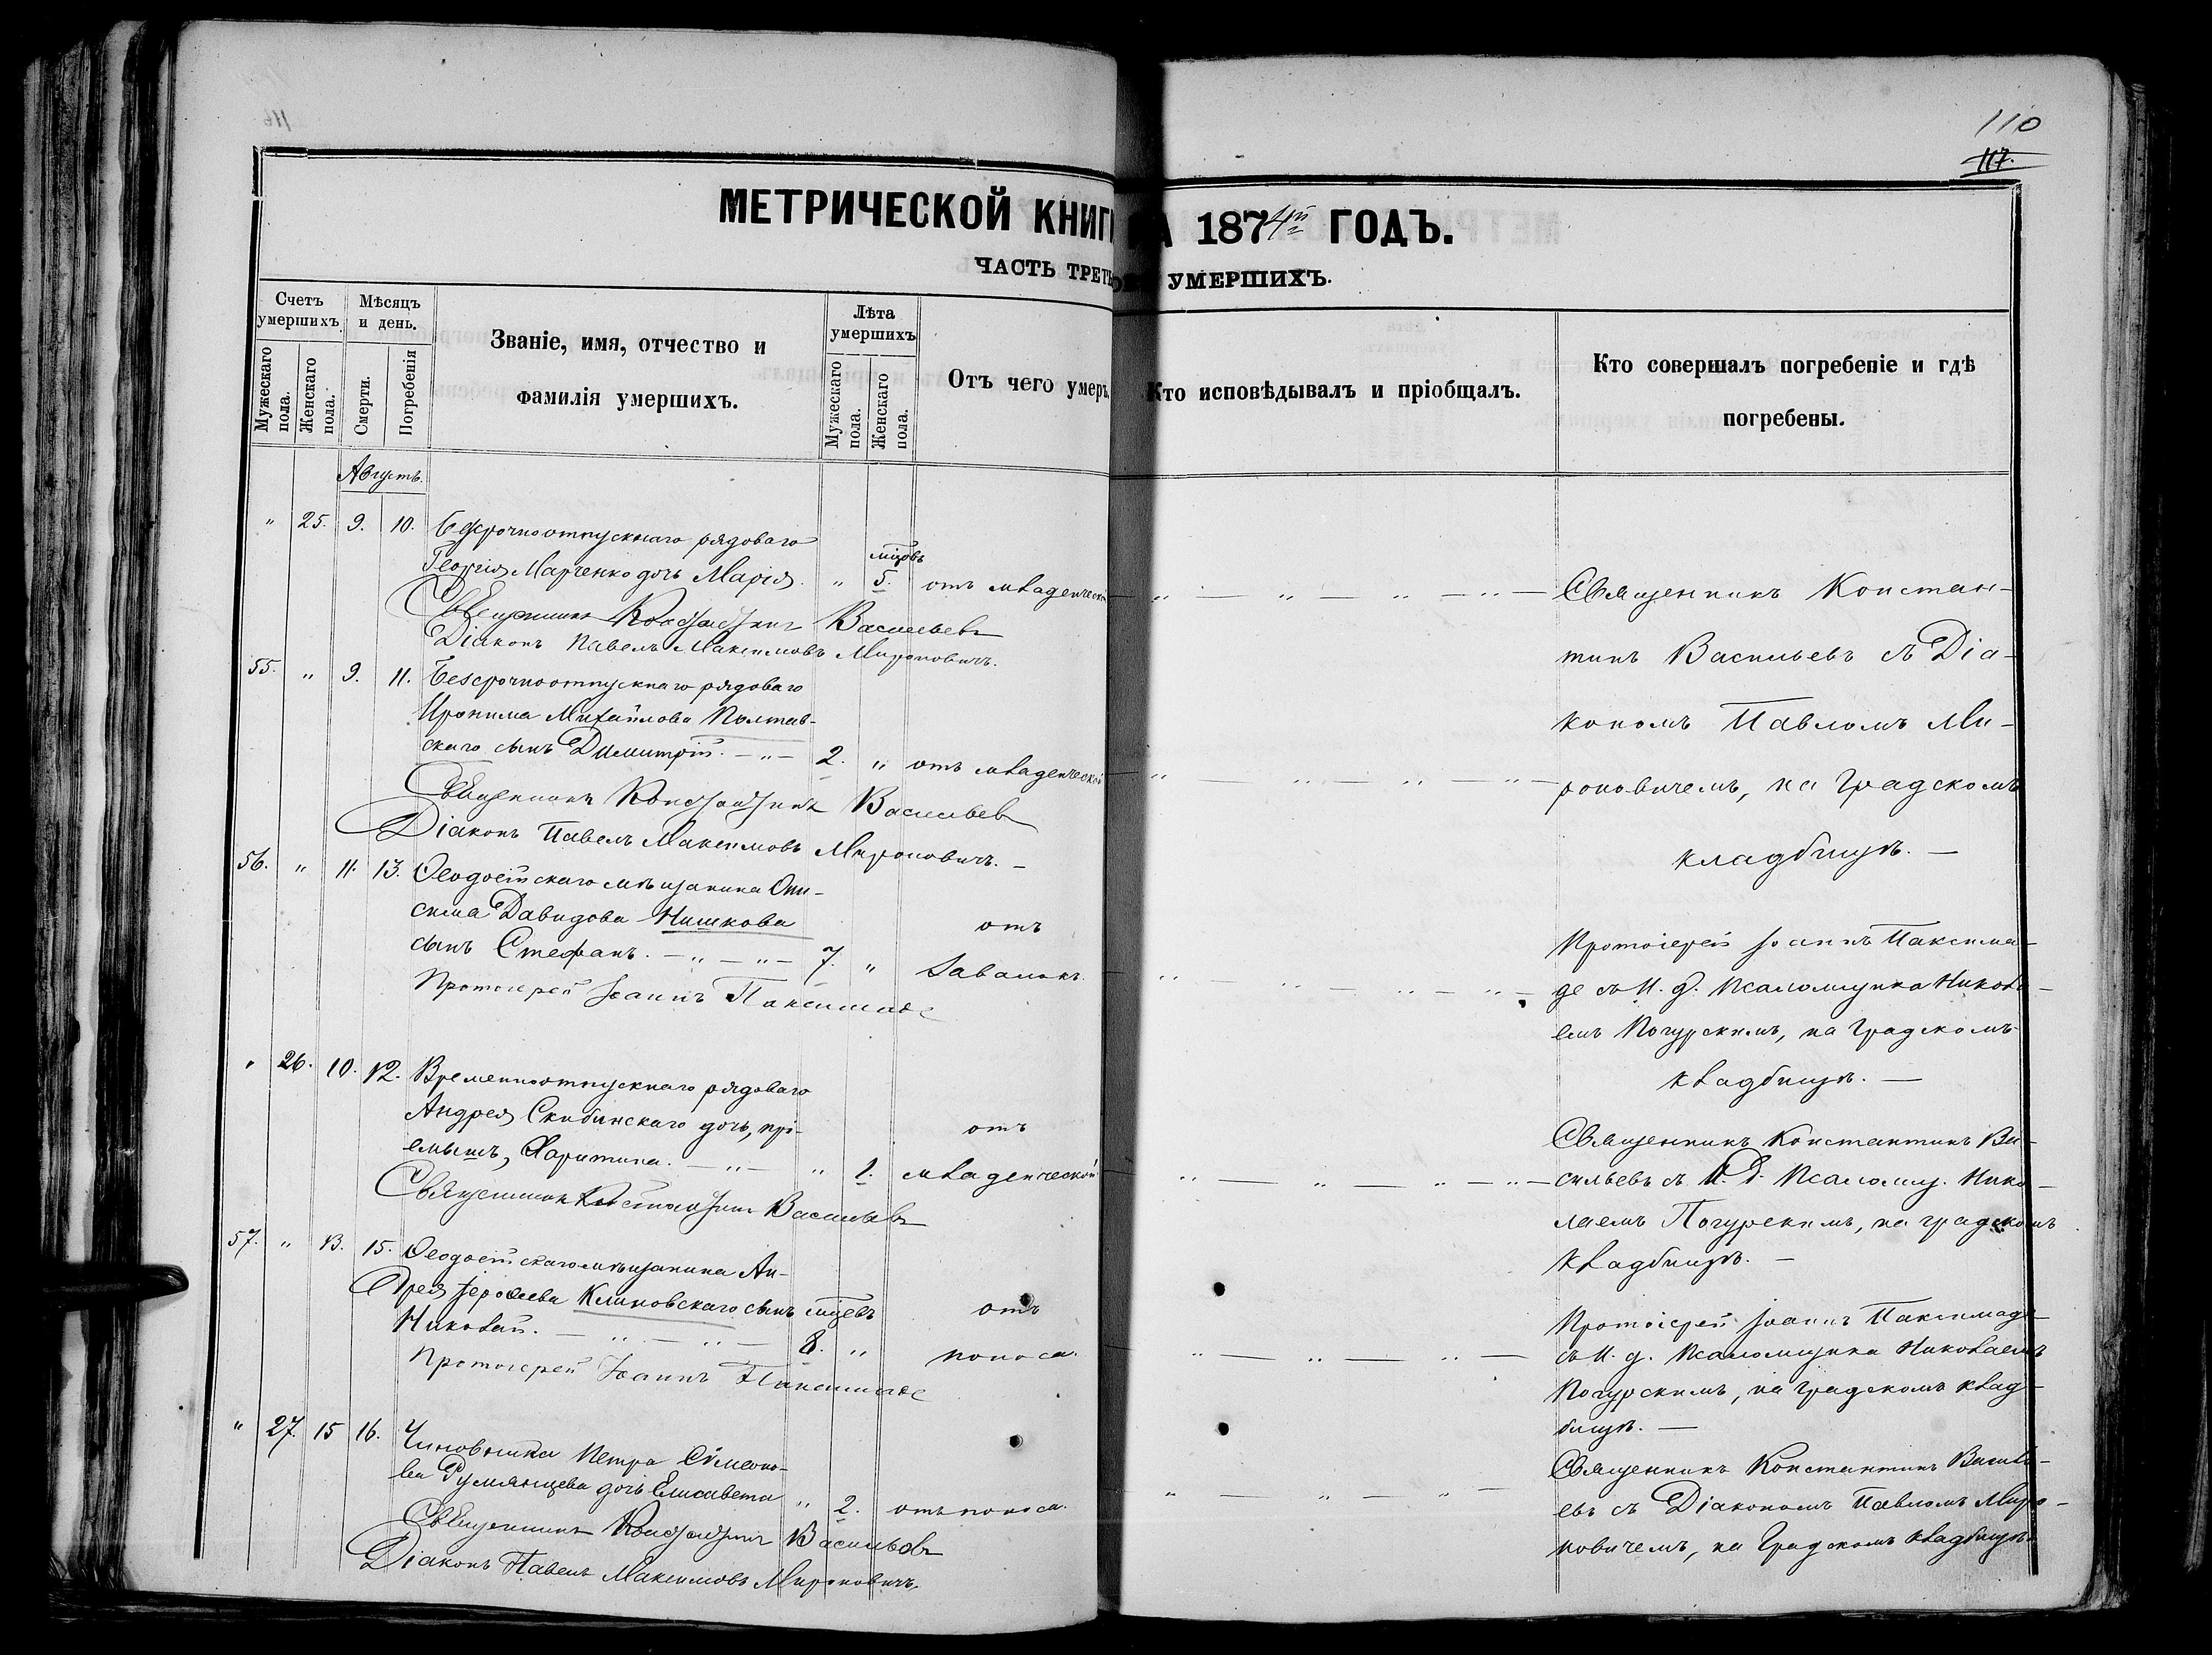 110
117.
МЕТРИЧЕСКОЙ КНИГ А 1874й ГОДЪ.
ЧАСТЬ ТРЕТЬ УМЕРШИХЪ.
Счетъ умершихъ.
Мужескаго пола.
Женскаго пола.
Мѣсяцъ и день.
Смерти.
Погребенія
Званіе, имя, отчество и
фамилія умершихъ.
Лѣта умершихъ
Мужескаго пола.
Женскаго пола.
Отъ чего умеръ
Кто исповѣдывалъ и пріобщалъ.
Кто совершалъ погребеніе и гдѣ
погребены.
Августъ.
" 25. 9. 10. Безсрочноотпускнаго рядоваго
Георгія Марченко дочь Марія. " мцовъ 5. отъ младенческ
Священникъ Константинъ Васильевъ
Діаконъ Павелъ Максимовъ Мироновичъ.
Священникъ Констан-
тинъ Васильевъ съ Діа-
кономъ Павломъ Ми-
роновичемъ, на Градскомъ
кладбищѣ. —
55. " 9. 11. Безсрочноотпускнаго рядоваго
Иронима Михайлова Полтав-
скаго сынъ Димитрій. — " — 2. " отъ младенческой
Священникъ Константинъ Васильевъ
Діаконъ Павелъ Максимовъ Мироновичъ. —
56. " 11. 13. Ѳеодосійскаго мѣщанина Они-
сима Давидова Нишкова отъ
сынъ Стефанъ. — " — " — 7. " завалокъ.
Протоіерей Іоаннъ Паксимаде
Протоіерей Іоаннъ Паксима-
де съ И. д. Псаломщика Никола-
емъ Погурскимъ, на Градскомъ
кладбищѣ. —
" 26. 10. 12. Временноотпускнаго рядоваго
Андрея Скибинскаго дочь, прі- отъ
емышъ, Харитина. — " — " 1. младенческой
Священникъ Константинъ Васильевъ
Священникъ Константинъ Ва-
сильевъ съ И. Д. Псаломщ. Нико-
лаемъ Погурскимъ, на градскомъ
кладбищѣ. —
57. " 13. 15. Ѳеодосійскаго мѣщанина Ан-
дрея Іероѳеева Климовскаго сынъ мцевъ отъ
Николай. — " — " — 8. " поноса.
Протоіерей Іоаннъ Паксимаде
Протоіерей Іоаннъ Паксимаде
съ И. д. Псаломщика Николаемъ
Погурскимъ, на Градскомъ клад-
бищѣ. —
" 27. 15 16. Чиновника Петра Симеоно-
ва Румянцева дочь Елисавета " 2. отъ поноса.
Священникъ Константинъ Васильевъ
Діаконъ Павелъ Максимовъ Мироновичъ.
Священникъ Константинъ Василь-
евъ съ Діакономъ Павломъ Миро-
новичемъ, на Градскомъ кладбищѣ.